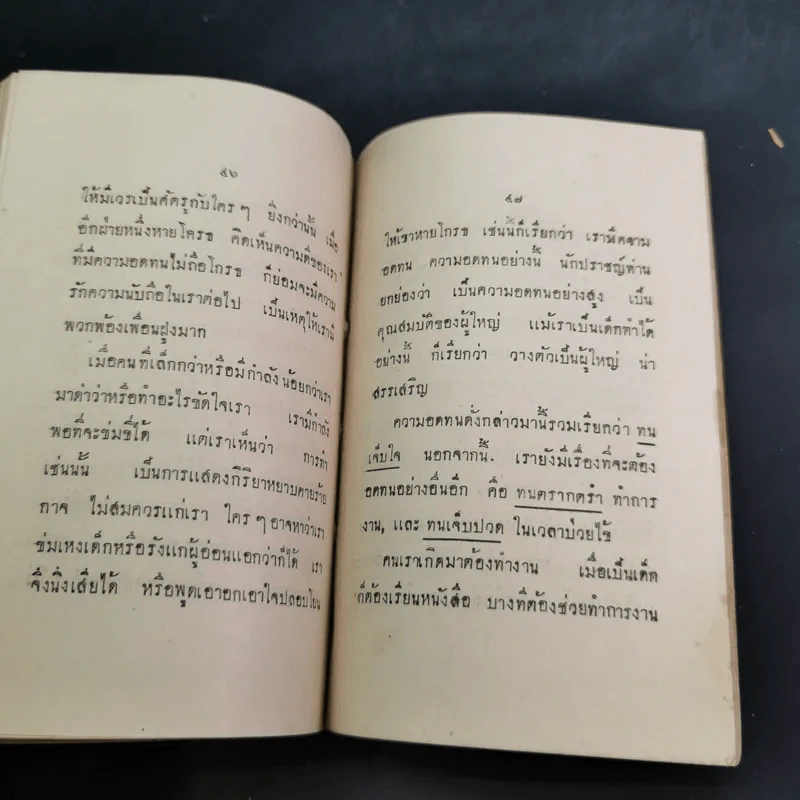 ๔๖
ให้มีเวรเป็นศัตรูกับใคร ๆ ยิ่งกว่านั้น เมื่อ
อีกฝ่ายหนึ่งหายโกรธ คิดเห็นความดีของเรา
ที่มีความอดทนไม่ถือโกรธ ก็ย่อมจะมีความ
รักความนับถือในเราต่อไป เป็นเหตุให้เรามี
พวกพ้องเพื่อนฝูงมาก
เมื่อคนที่เล็กกว่าหรือมีกำลังน้อยกว่าเรา
มาด่าว่าหรือทำอะไรขัดใจเรา เรามีกำลัง
พอที่จะข่มขี่ได้ แต่เราเห็นว่า การทำ
เช่นนั้น เป็นการแสดงกิริยาหยาบคายร้าย
กาจ ไม่สมควรแก่เรา ใคร ๆ อาจหาว่าเรา
ข่มเหงเด็กหรือรังแกผู้อ่อนแอกว่าก็ได้ เรา
จึงนิ่งเสียได้ หรือพูดเอาอกเอาใจปลอบโยน
๔๗
ให้เขาหายโกรธ เช่นนี้ก็เรียกว่า เรามีความ
อดทน ความอดทนอย่างนี้ นักปราชญ์ท่าน
ยกย่องว่า เป็นความอดทนอย่างสูง เป็น
คุณสมบัติของผู้ใหญ่ แม้เราเป็นเด็กทำได้
อย่างนี้ ก็เรียกว่า วางตัวเป็นผู้ใหญ่ น่า
สรรเสริญ
ความอดทนดั่งกล่าวมานี้รวมเรียกว่า ทน
เจ็บใจ นอกจากนี้. เรายังมีเรื่องที่จะต้อง
อดทนอย่างอื่นอีก คือ ทนตรากตรำ ทำการ
งาน, และ ทนเจ็บปวด ในเวลาป่วยไข้
คนเราเกิดมาต้องทำงาน เมื่อเป็นเด็ก
ก็ต้องเรียนหนังสือ บางทีต้องช่วยทำการงาน